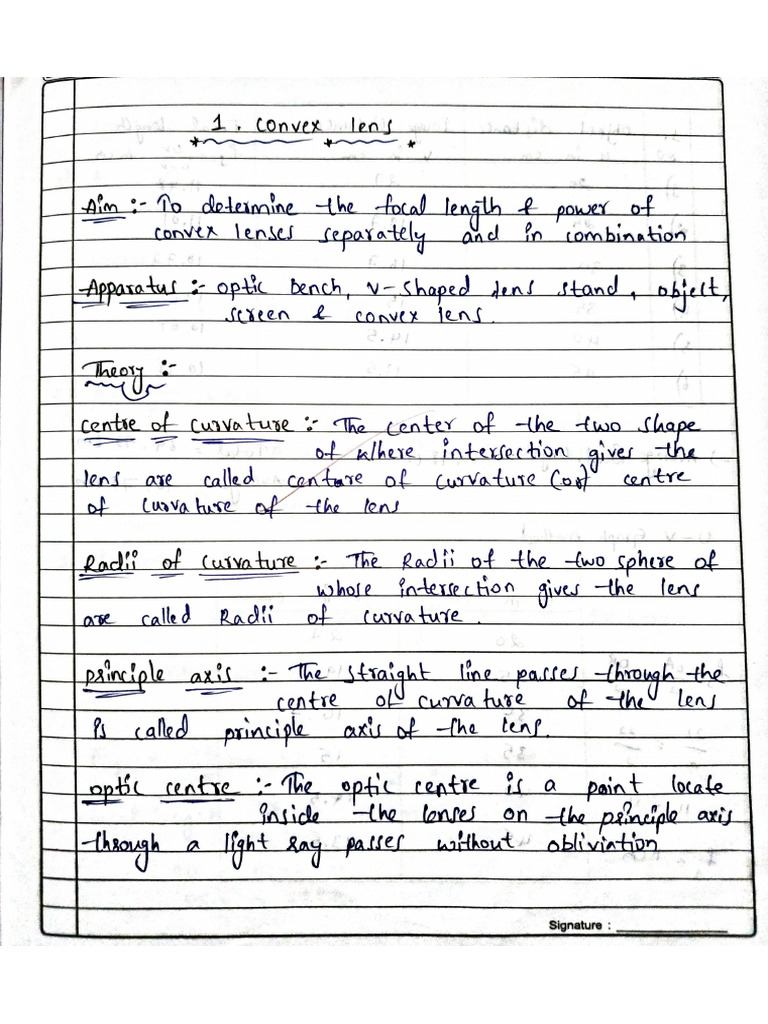 1. Convex lens
Aim :- To determine the focal length & power of
convex lenses separately and in combination
Apparatus :- optic bench, V-shaped lens stand, object,
screen & convex lens.
Theory :-
Centre of Curvature :- The center of the two shape
of where intersection gives the
lens are called centure of curvature (or) centre
of curvature of the lens
Radii of curvature :- The Radii of the two sphere of
whose intersection gives the lens
are called Radii of curvature.
principle axis :- The straight line passes through the
centre of curvature of the lens
is called principle axis of the lens.
optic centre :- The optic centre is a point locate
inside the lenses on the principle axis
through a light ray passes without obliviation
Signature :